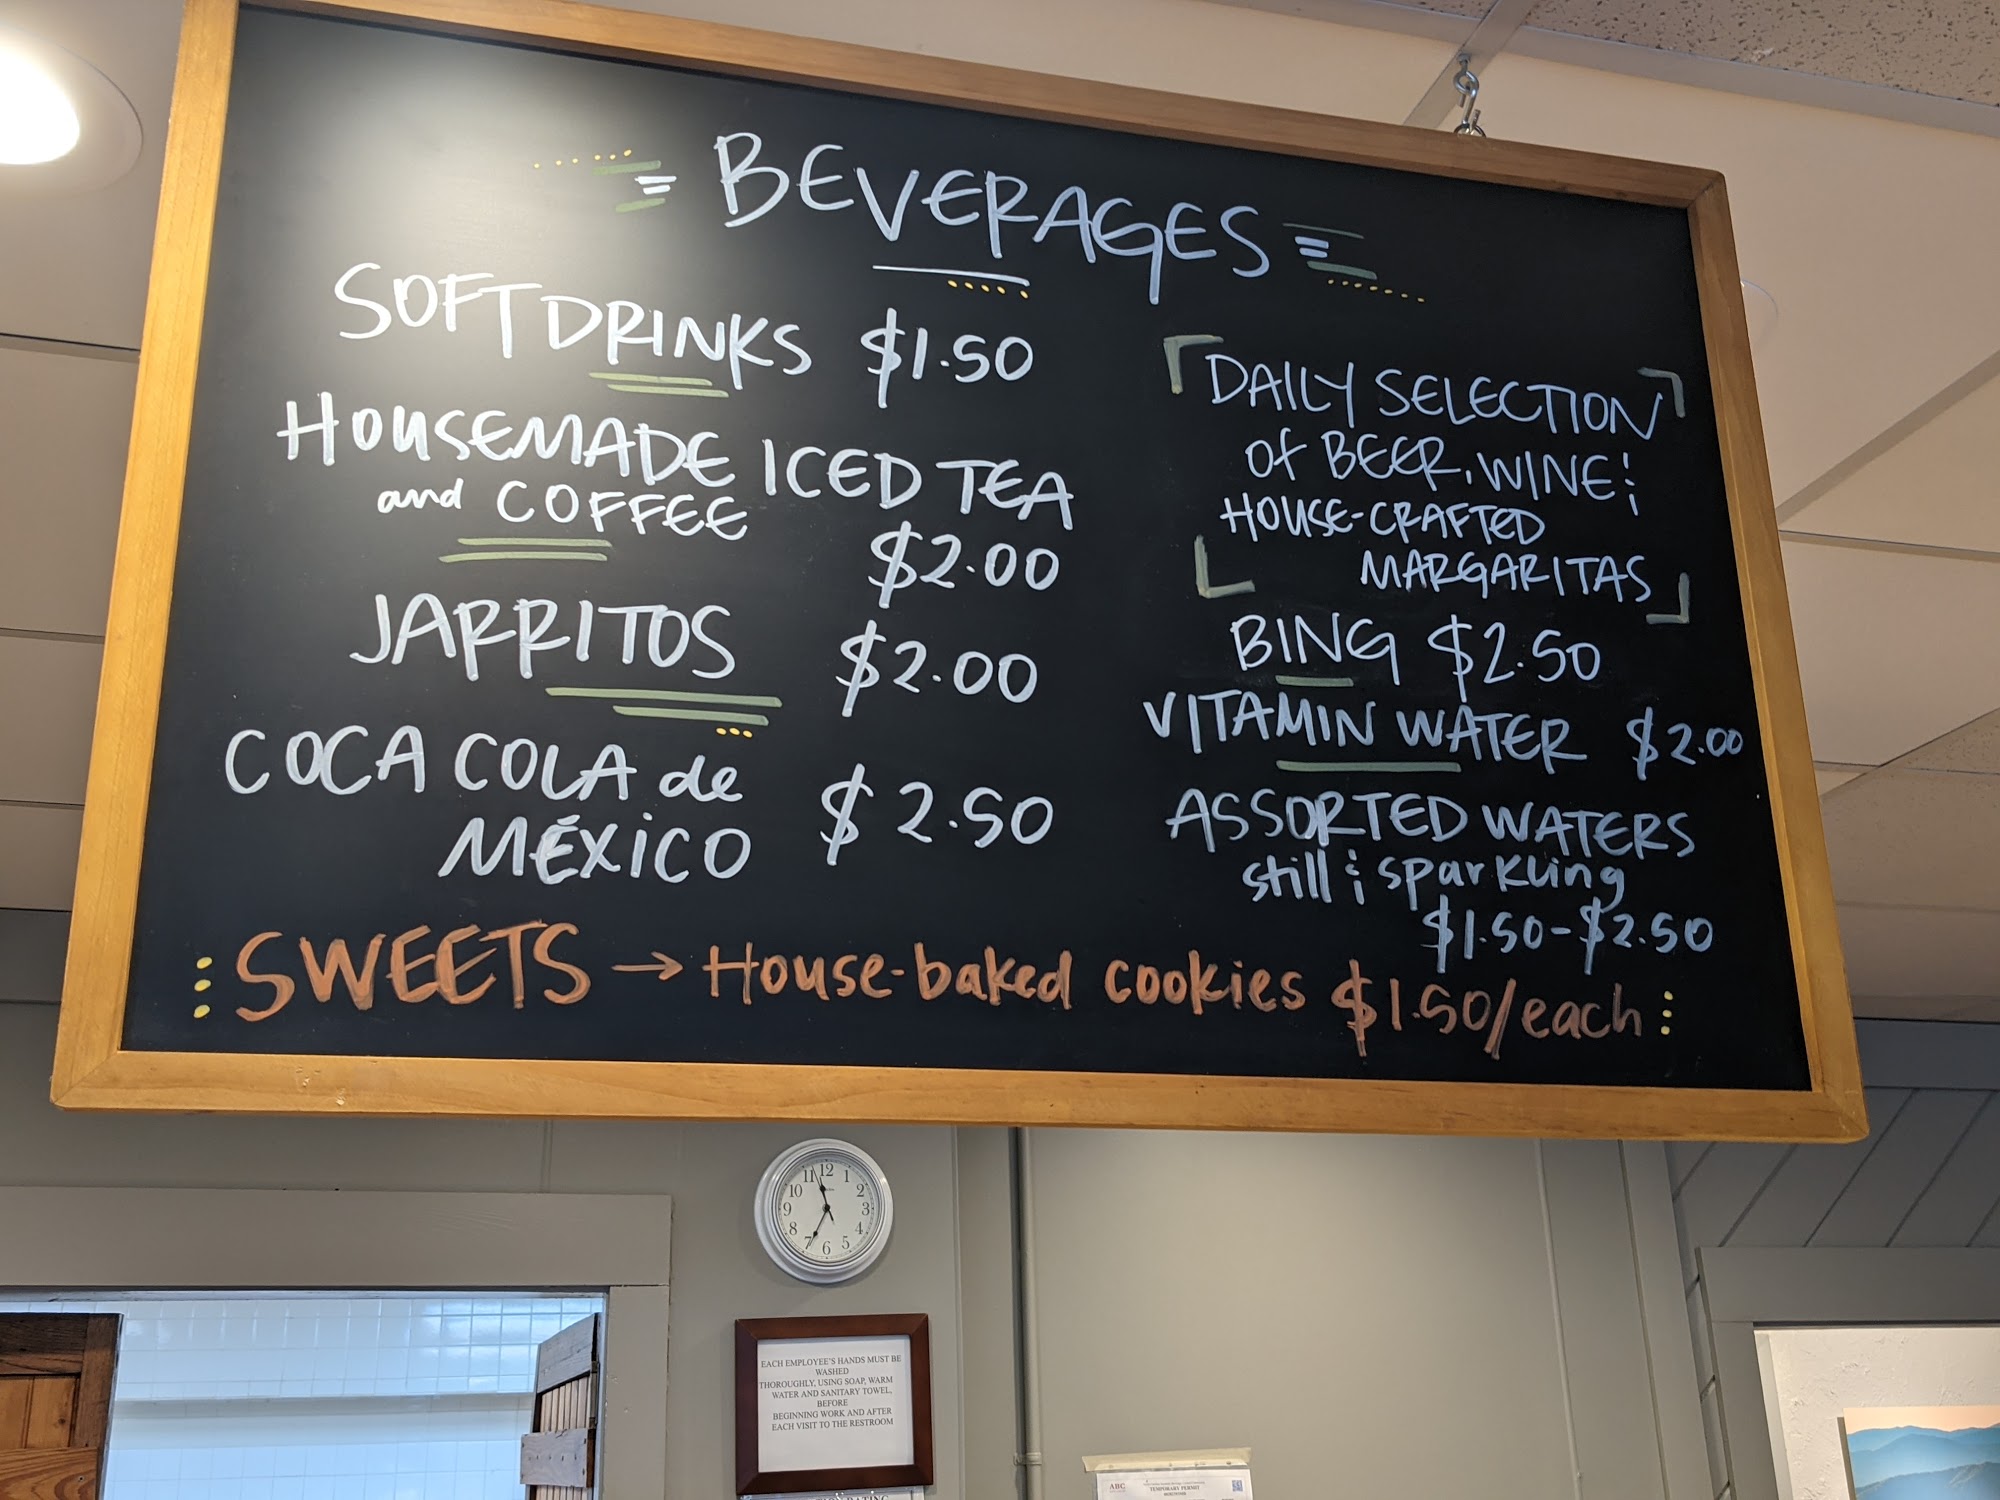 BEVERAGES
SOFT DRINKS $1.50
HOUSEMADE ICED TEA
and COFFEE $2.00
JARRITOS $2.00
COCA COLA de
MÉXICO $2.50
DAILY SELECTION
Of BEER, WINE &
HOUSE-CRAFTED
MARGARITAS
BING $2.50
VITAMIN WATER $2.00
ASSORTED WATERS
still & sparkling
$1.50-$2.50
SWEETS → House-baked cookies $1.50/each
12
1
2
3
4
5
6
7
8
9
10
11
EACH EMPLOYEE'S HANDS MUST BE
WASHED
THOROUGHLY, USING SOAP, WARM
WATER AND SANITARY TOWEL,
BEFORE
BEGINNING WORK AND AFTER
EACH VISIT TO THE RESTROOM
ABC
TEMPORARY PERMIT